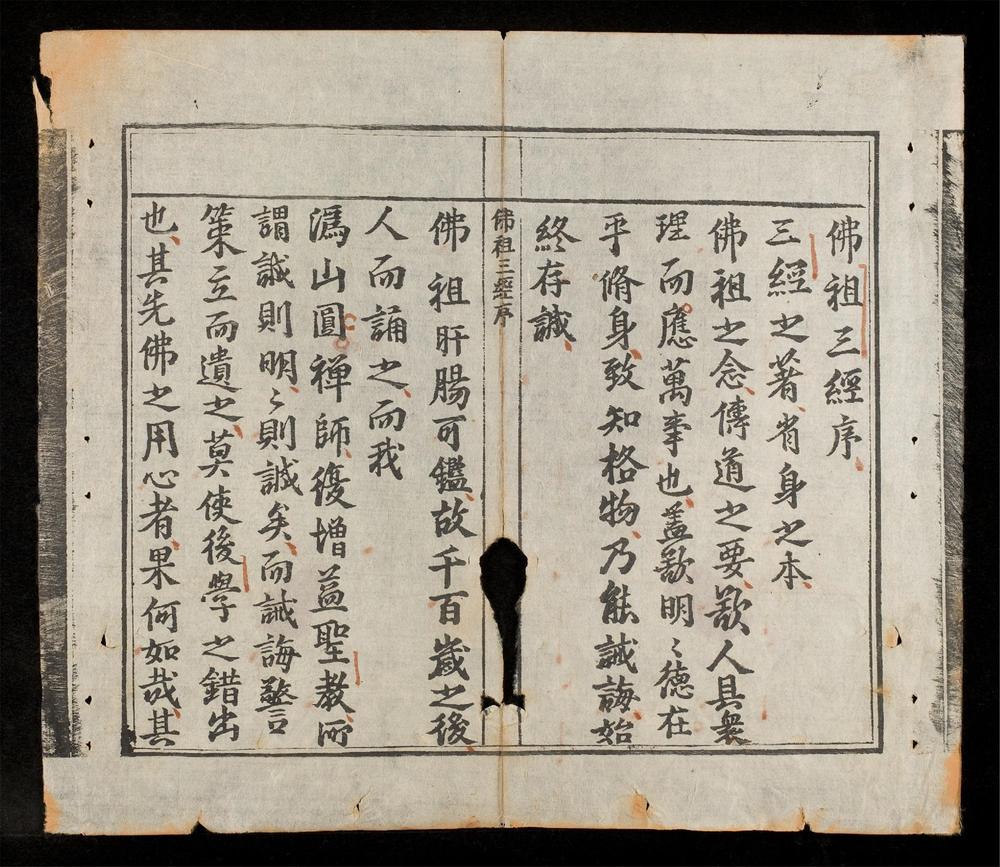 佛祖三經序
三經之著省身之本
佛祖之念傳道之要歟人具衆
理而應萬事也蓋歟明〻德在
乎脩身致知格物乃能誠誨始
終存誠
佛祖三經序
佛祖肝腸可鑑故千百歲之後
人而誦之而我
溈山圓禪師復增益聖教所
謂誠則明〻則誠矣而誡誨警
策立而遺之莫使後學之錯出
也其先佛之用心者果何如哉其